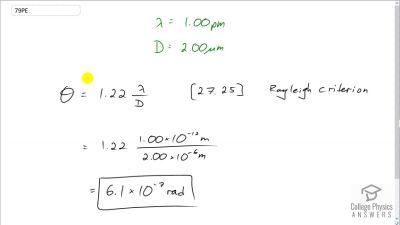 79PE
λ = 1.00 pm
D = 2.00 μm
θ = 1.22 λ/D [27.25] Rayleigh criterion
= 1.22 1.00×10⁻¹² m / 2.00×10⁻⁶ m
= 6.1×10⁻⁷ rad
College Physics
ANSWERS